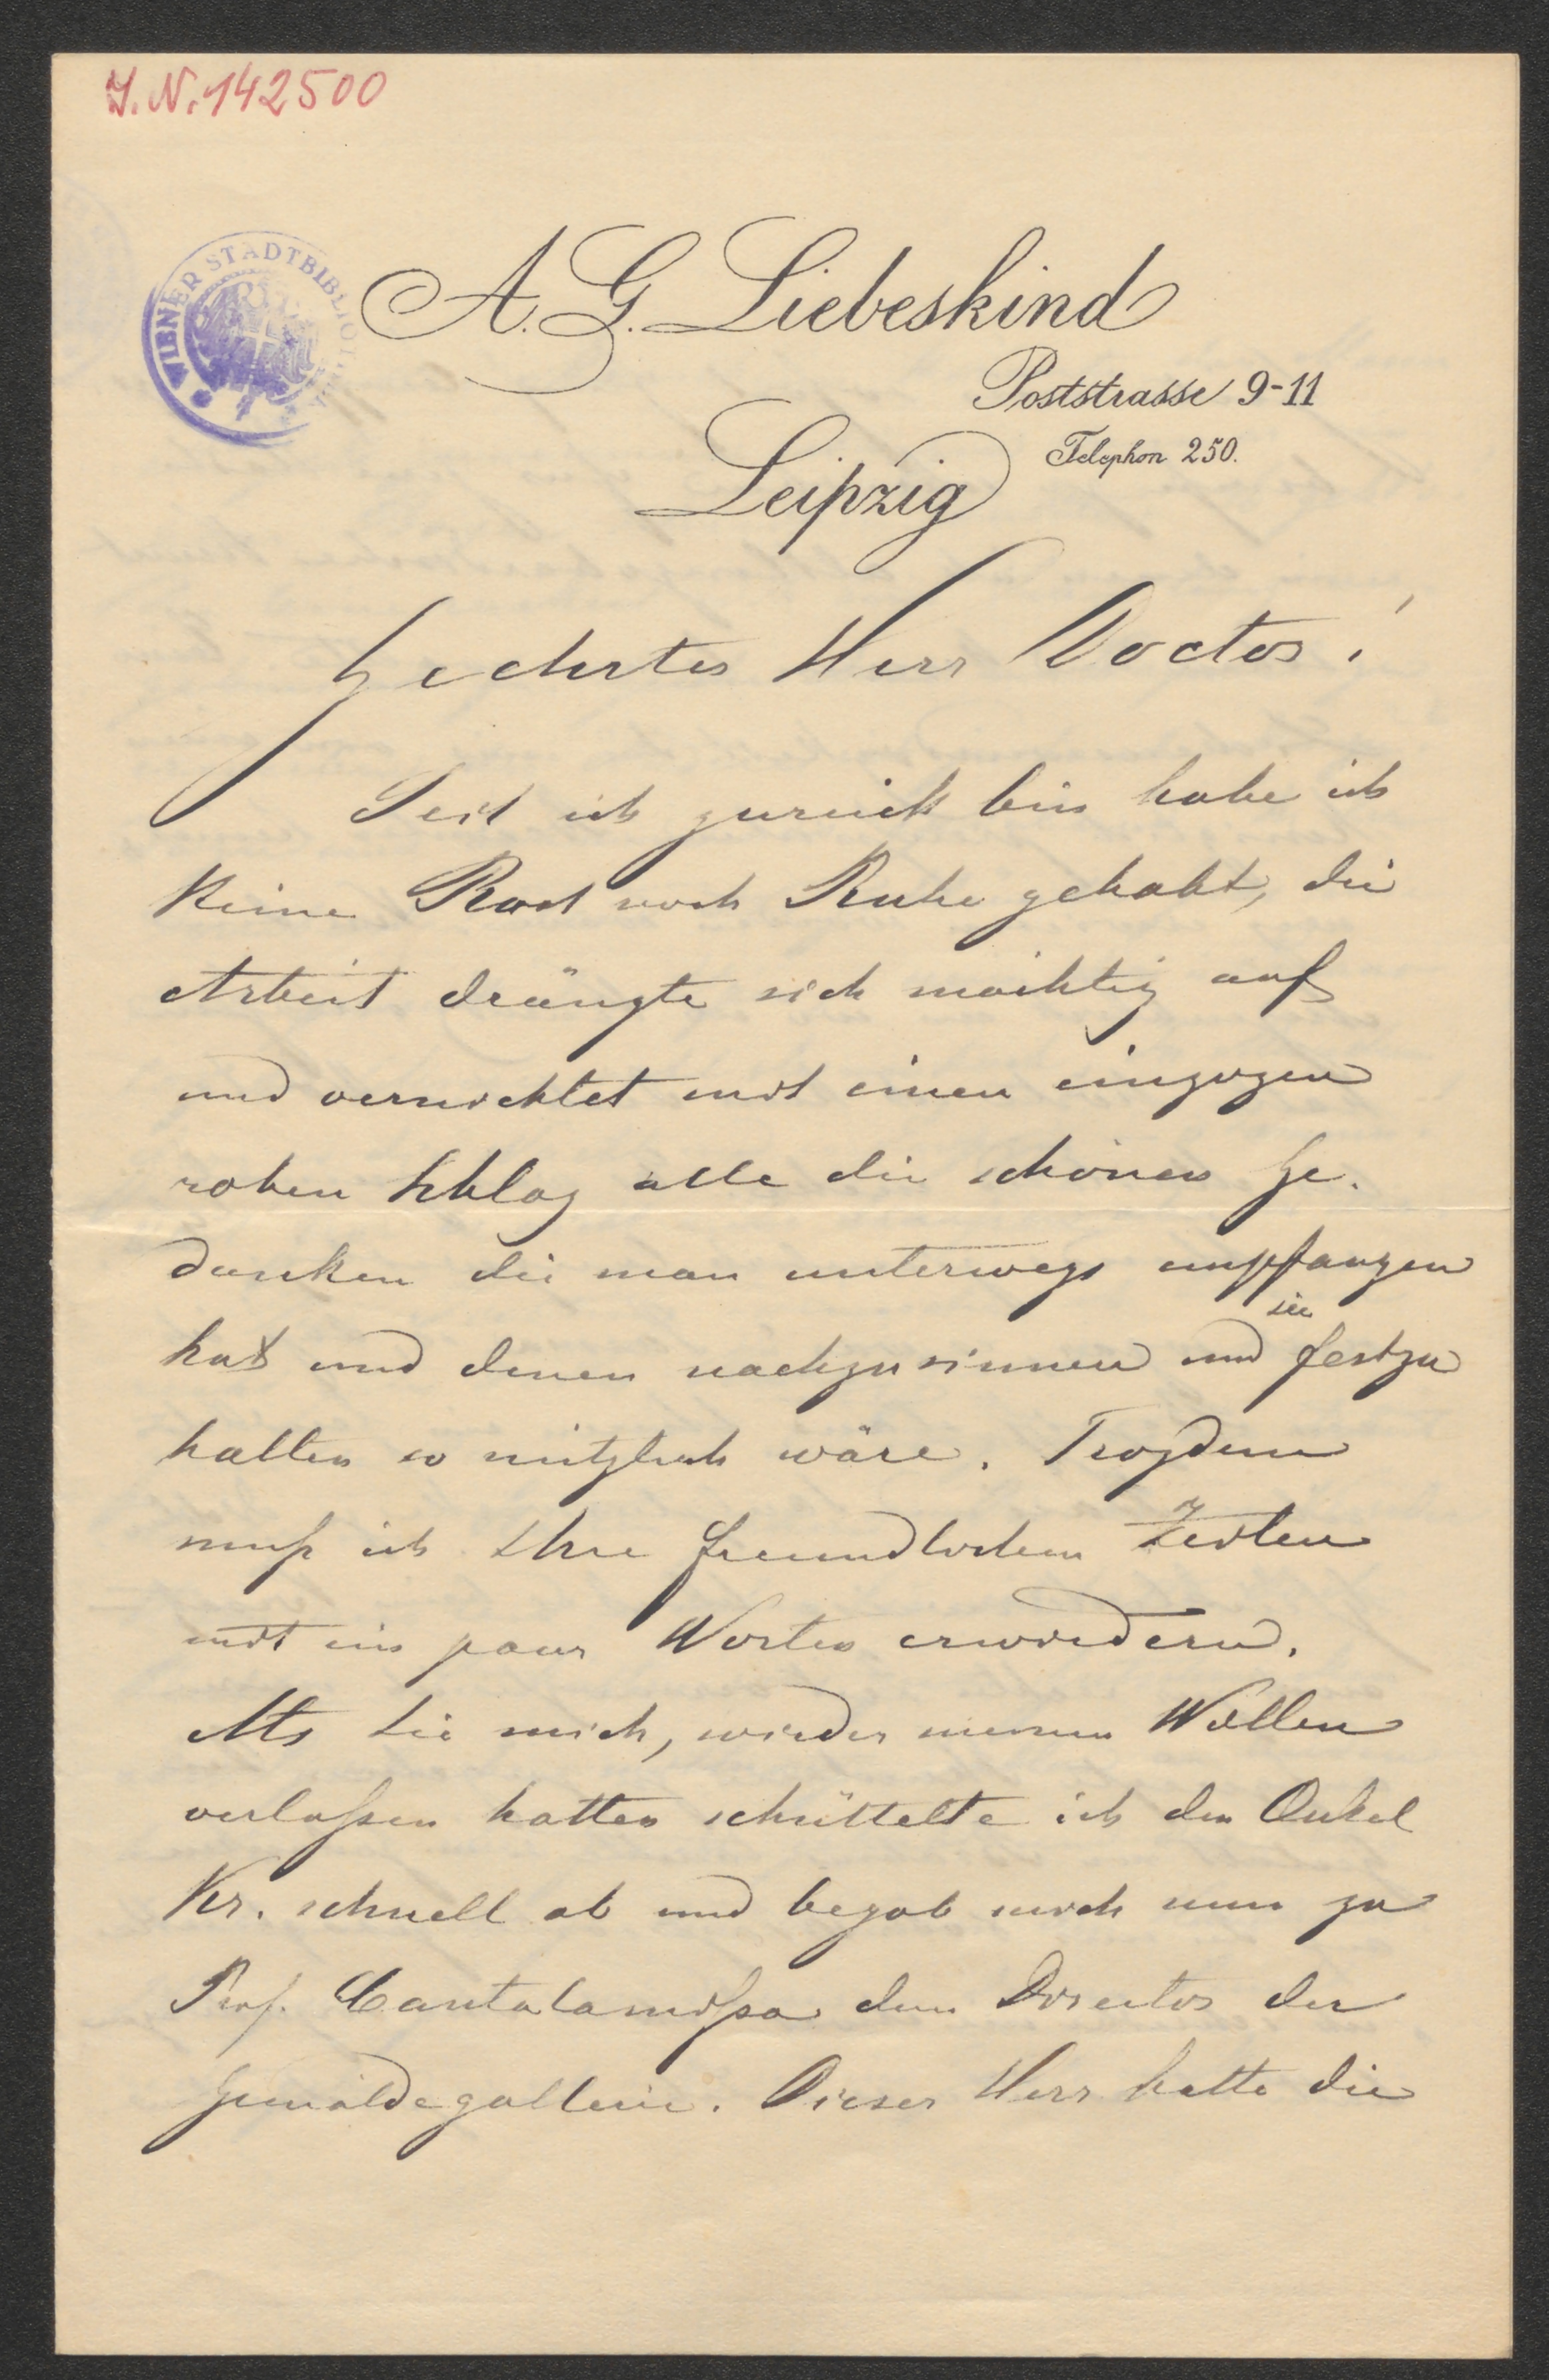 J. N. 142500
WIENER STADTBIBLIOTHEK
A. G. Liebeskind
Poststrasse 9-11
Telephon 250.
Leipzig
Geehrter Herr Doctor!
Seit ich zurück bin habe ich
keine Rast noch Ruhe gehabt, die
Arbeit drängte sich mächtig auf
und vernichtet mit einen einzigen
rohen Schlag alle die schönen Ge-
danken die man unterwegs empfangen
hat und denen nachzusinnen und sie festzu
halten so nützlich wäre. Trozdem
muß ich Ihre freundlichen Zeilen
mit ein paar Worten erwiedern.
Als Sie mich, wieder meinen Willen
verlaßen hatten schüttelte ich den Onkel
Kr. schnell ab und begab mich nun zu
Prof. Cantalamißa dem Director der
Gemäldegallerie. Dieser Herr hatte die